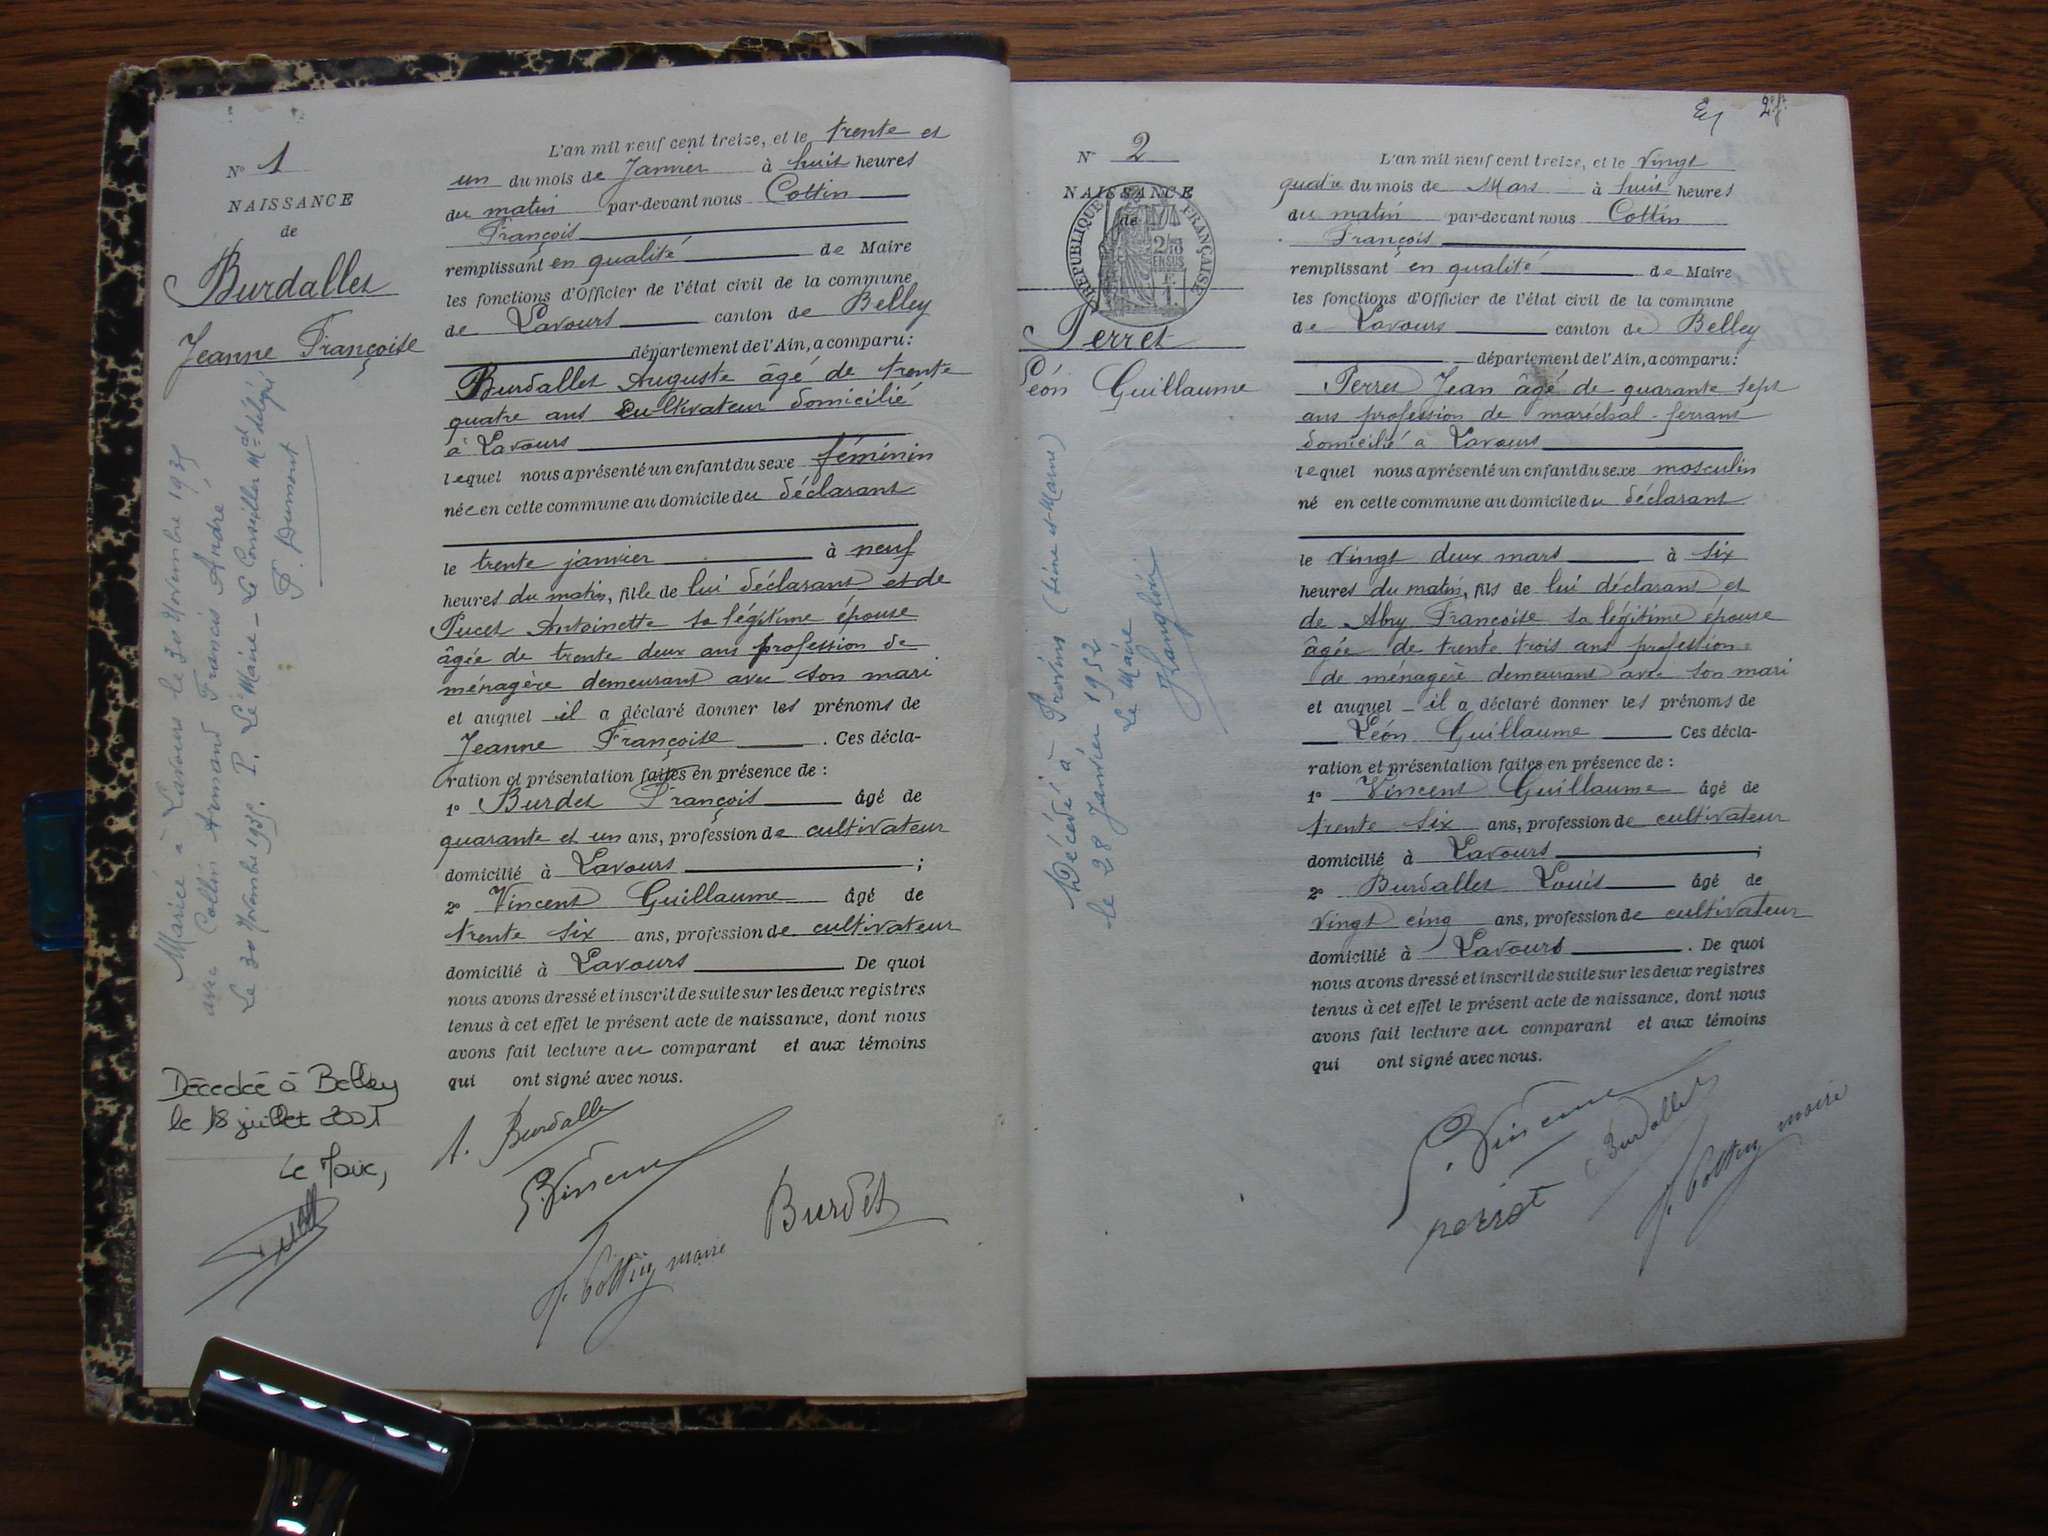 N° 1
NAISSANCE
de
Burdallet
Jeanne Françoise
Mariée à Lavours le 30 Novembre 1935
avec Collin Armand Francis André
Le 30 Novembre 1935. P. Le Maire - Le Conseiller Mal délégué
F. Dumont
Décédée à Belley
le 18 juillet 2001
Le Maire,
L'an mil neuf cent treize, et le trente et
un du mois de Janvier à huit heures
du matin par-devant nous Cottin
François
remplissant en qualité de Maire
les fonctions d'Officier de l'état civil de la commune
de Lavours canton de Belley
département de l'Ain, a comparu:
Burdallet Auguste âgé de trente
quatre ans cultivateur domicilié
à Lavours
lequel nous a présenté un enfant du sexe féminin
née en cette commune au domicile du déclarant
le trente janvier à neuf
heures du matin, fille de lui déclarant et de
Pucet Antoinette sa légitime épouse
âgée de trente deux ans profession de
ménagère demeurant avec son mari
et auquel il a déclaré donner les prénoms de
Jeanne Françoise. Ces décla-
ration et présentation faites en présence de :
1° Burdet François âgé de
quarante et un ans, profession de cultivateur
domicilié à Lavours ;
2° Vincent Guillaume âgé de
trente six ans, profession de cultivateur
domicilié à Lavours. De quoi
nous avons dressé et inscrit de suite sur les deux registres
tenus à cet effet le présent acte de naissance, dont nous
avons fait lecture au comparant et aux témoins
qui ont signé avec nous.
A. Burdallet
G. Vincent
Burdet
F. Cottin maire
2
N° 2
NAISSANCE
de
RÉPUBLIQUE FRANÇAISE
Perret
Léon Guillaume
Décédé à Provins (Seine et Marne)
le 28 Janvier 1952
Le Maire
L'an mil neuf cent treize, et le vingt
quatre du mois de Mars à huit heures
du matin par-devant nous Cottin
François
remplissant en qualité de Maire
les fonctions d'Officier de l'état civil de la commune
de Lavours canton de Belley
département de l'Ain, a comparu:
Perret Jean âgé de quarante sept
ans profession de maréchal-ferrant
domicilié à Lavours
lequel nous a présenté un enfant du sexe masculin
né en cette commune au domicile du déclarant
le vingt deux mars à six
heures du matin, fils de lui déclarant et
de Abry Françoise sa légitime épouse
âgée de trente trois ans profession
de ménagère demeurant avec son mari
et auquel il a déclaré donner les prénoms de
Léon Guillaume Ces décla-
ration et présentation faites en présence de :
1° Vincent Guillaume âgé de
trente six ans, profession de cultivateur
domicilié à Lavours ;
2° Burdallet Louis âgé de
vingt cinq ans, profession de cultivateur
domicilié à Lavours. De quoi
nous avons dressé et inscrit de suite sur les deux registres
tenus à cet effet le présent acte de naissance, dont nous
avons fait lecture au comparant et aux témoins
qui ont signé avec nous.
G. Vincent
Burdallet
perret
F. Cottin maire